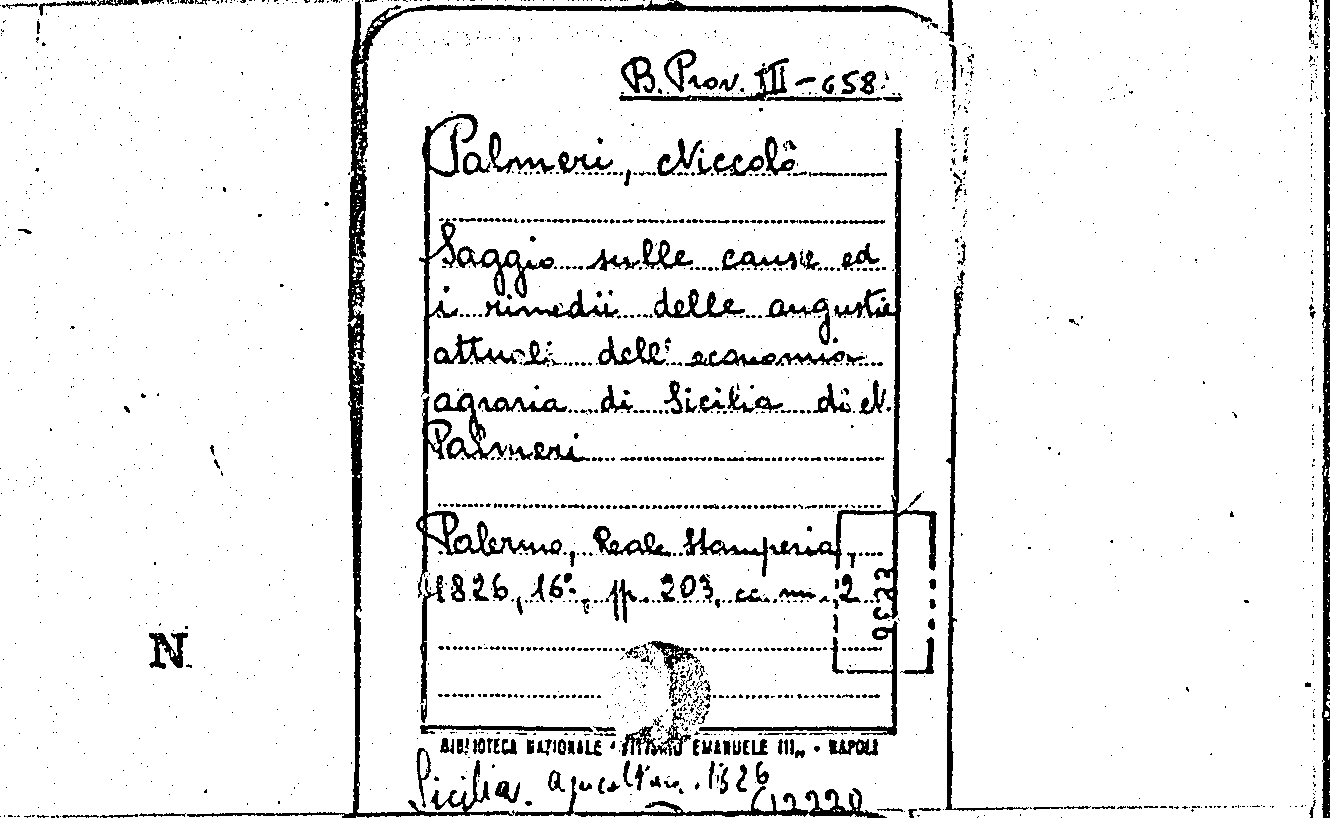 B. Prov. III - 658
Palmeri, Niccolò
Saggio sulle cause ed
i rimedii delle augustie
attuali dell' economia
agraria di Sicilia di N.
Palmeri
Palermo, Reale Stamperia,
1826, 16°, pp. 203, cc. nn. 2
N
BIBLIOTECA NAZIONALE · VITTORIO EMANUELE III,, · NAPOLI
Sicilia. Agricoltura. 1826